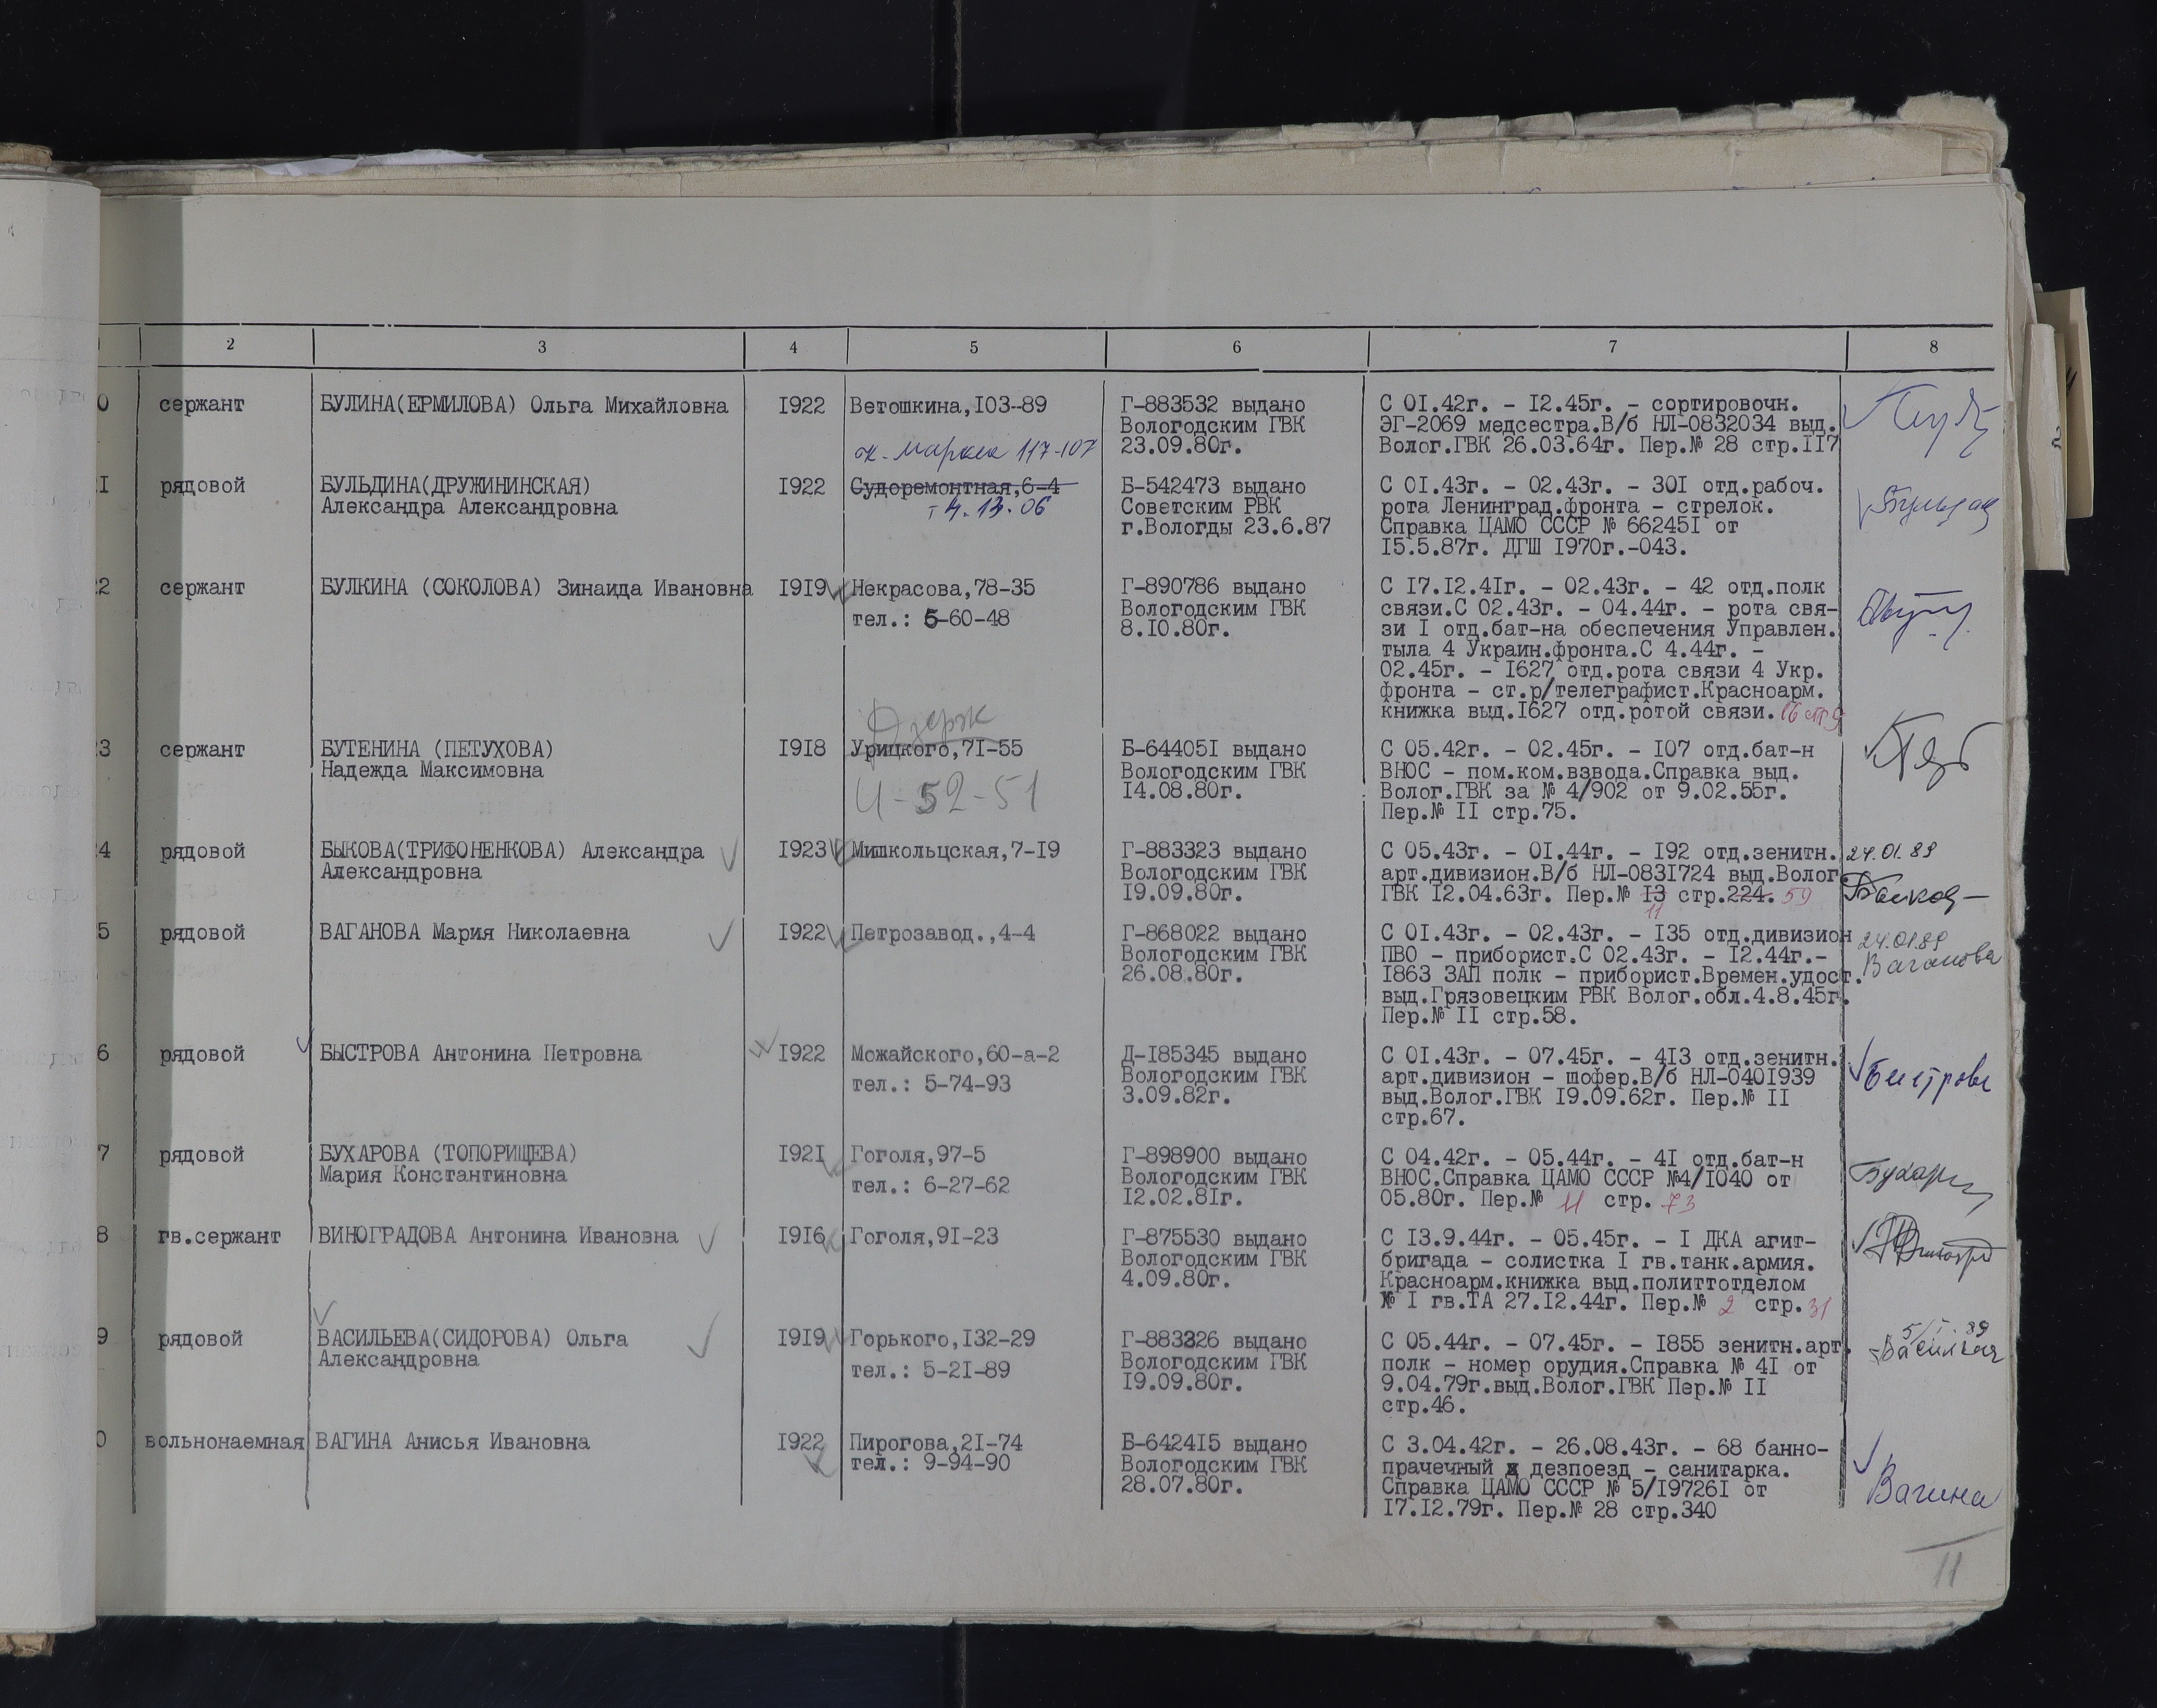 2 3 4 5 6 7 8
0 сержант БУЛИНА(ЕРМИЛОВА) Ольга Михайловна I922 Ветошкина,I03-89 Г-883532 выдано С 0I.42г. - I2.45г. - сортировочн.
Вологодским ГВК ЭГ-2069 медсестра.В/б НЛ-0832034 выд.
К. Маркса 117-107 23.09.80г. Волог.ГВК 26.03.64г. Пер.№ 28 стр.II7
I рядовой БУЛЬДИНА(ДРУЖИНИНСКАЯ) I922 Судоремонтная,6-4 Б-542473 выдано С 0I.43г. - 02.43г. - 30I отд.рабоч.
Александра Александровна т 4.13.06 Советским РВК рота Ленинград.фронта - стрелок.
г.Вологды 23.6.87 Справка ЦАМО СССР № 66245I от
I5.5.87г. ДГШ I970г.-043.
2 сержант БУЛКИНА (СОКОЛОВА) Зинаида Ивановна I9I9 Некрасова,78-35 Г-890786 выдано С I7.I2.4Iг. - 02.43г. - 42 отд.полк
тел.: 5-60-48 Вологодским ГВК связи.С 02.43г. - 04.44г. - рота свя-
8.I0.80г. зи I отд.бат-на обеспечения Управлен.
тыла 4 Украин.фронта.С 4.44г. -
02.45г. - I627 отд.рота связи 4 Укр.
фронта - ст.р/телеграфист.Красноарм.
книжка выд.I627 отд.ротой связи.
3 сержант БУТЕНИНА (ПЕТУХОВА) I9I8 Урицкого,7I-55 Б-64405I выдано С 05.42г. - 02.45г. - I07 отд.бат-н
Надежда Максимовна Вологодским ГВК ВНОС - пом.ком.взвода.Справка выд.
4-52-51 I4.08.80г. Волог.ГВК за № 4/902 от 9.02.55г.
Пер.№ II стр.75.
4 рядовой БЫКОВА(ТРИФОНЕНКОВА) Александра I923 Мишкольцская,7-I9 Г-883323 выдано С 05.43г. - 0I.44г. - I92 отд.зенитн. 24.01.89
Александровна Вологодским ГВК арт.дивизион.В/б НЛ-083I724 выд.Волог.
I9.09.80г. ГВК I2.04.63г. Пер.№ I3 стр.224. 59
11
5 рядовой ВАГАНОВА Мария Николаевна I922 Петрозавод.,4-4 Г-868022 выдано С 0I.43г. - 02.43г. - I35 отд.дивизион 24.01.89
Вологодским ГВК ПВО - приборист.С 02.43г. - I2.44г.- Ваганова
26.08.80г. I863 ЗАП полк - приборист.Времен.удост.
выд.Грязовецким РВК Волог.обл.4.8.45г.
Пер.№ II стр.58.
6 рядовой БЫСТРОВА Антонина Петровна I922 Можайского,60-а-2 Д-I85345 выдано С 0I.43г. - 07.45г. - 4I3 отд.зенитн.
тел.: 5-74-93 Вологодским ГВК арт.дивизион - шофер.В/б НЛ-040I939 Быстрова
3.09.82г. выд.Волог.ГВК I9.09.62г. Пер.№ II
стр.67.
7 рядовой БУХАРОВА (ТОПОРИЩЕВА) I92I Гоголя,97-5 Г-898900 выдано С 04.42г. - 05.44г. - 4I отд.бат-н
Мария Константиновна тел.: 6-27-62 Вологодским ГВК ВНОС.Справка ЦАМО СССР №4/I040 от
I2.02.8Iг. 05.80г. Пер.№ 11 стр. 73
8 гв.сержант ВИНОГРАДОВА Антонина Ивановна I9I6 Гоголя,9I-23 Г-875530 выдано С I3.9.44г. - 05.45г. - I ДКА агит-
Вологодским ГВК бригада - солистка I гв.танк.армия.
4.09.80г. Красноарм.книжка выд.политтотделом
№ I гв.ТА 27.I2.44г. Пер.№ 2 стр. 31
9 рядовой ВАСИЛЬЕВА(СИДОРОВА) Ольга I9I9 Горького,I32-29 Г-883326 выдано С 05.44г. - 07.45г. - I855 зенитн.арт.
Александровна тел.: 5-2I-89 Вологодским ГВК полк - номер орудия.Справка № 4I от
I9.09.80г. 9.04.79г.выд.Волог.ГВК Пер.№ II
стр.46.
0 вольнонаемная ВАГИНА Анисья Ивановна I922 Пирогова,2I-74 Б-6424I5 выдано С 3.04.42г. - 26.08.43г. - 68 банно-
тел.: 9-94-90 Вологодским ГВК прачечный дезпоезд - санитарка.
28.07.80г. Справка ЦАМО СССР № 5/I9726I от Вагина
I7.I2.79г. Пер.№ 28 стр.340
11